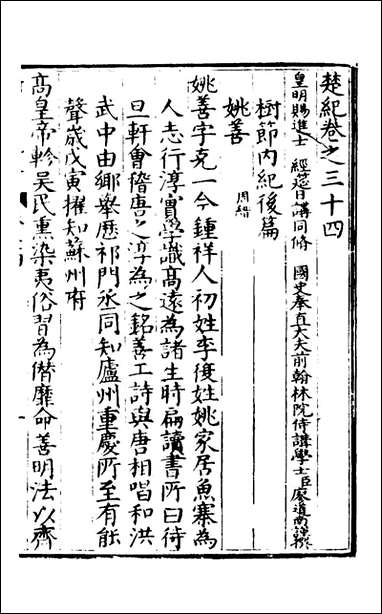 楚紀卷之三十四
皇明賜進士 經筵日講同脩 國史奉直大夫前翰林院侍講學士臣廖道南
樹節內紀後篇
姚善 周縉
姚善字克一今鍾祥人初姓李復姓姚家居魚寨為
人志行淳實學識高遠為諸生時扁讀書所曰待
旦軒會稽唐之淳為之銘善工詩與唐相唱和洪
武中由鄉舉歷祁門丞同知廬州重慶所至有能
聲歲戊寅擢知蘇州府
高皇帝軫吳民熏染夷俗習為僣靡命善明法以齊